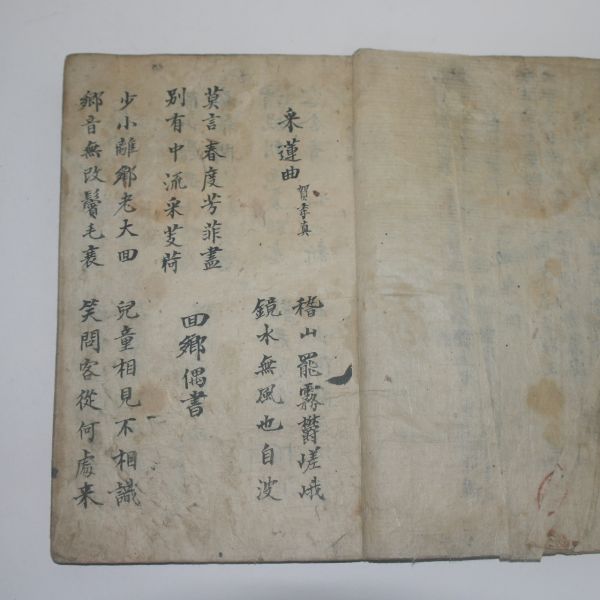 采蓮曲 賀季真
稽山罷霧鬱嵯峨
鏡水無風也自波
莫言春度芳菲盡
別有中流采芰荷
囬鄉偶書
少小離鄉老大囬
鄉音無改鬢毛衰
兒童相見不相識
笑問客從何處来